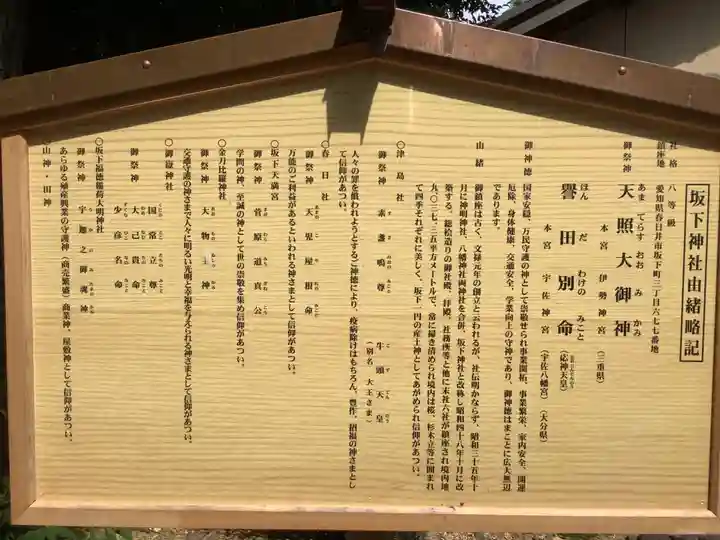 坂下神社由緒略記
社格 八等級
鎮座地 愛知県春日井市坂下町三丁目六七七番地
御祭神 天照大御神 あま てらす おお み かみ
本宮 伊勢神宮 (三重県)
譽田別命 ほん だ わけの みこと (応神天皇)
本宮 宇佐神宮 (宇佐八幡宮) (大分県)
御神徳
国家安穏、万民守護の神として崇敬せられ事業開拓、事業繁栄、家内安全、開運
厄除、身体健康、交通安全、学業向上の守神であり、御神徳はまことに広大無辺
であります。
由緒
御鎮座は古く、文禄元年の創立と云われるが、社伝明かならず、昭和三十五年十
月に神明神社、八幡神社両神社を合併、坂下神社と改称し昭和四十八年十月に改
築する。総桧造りの御社殿、拝殿、社務所等と他に末社六社が鎮座され境内地
九、〇三七、三五平方メートルで、常に掃き清められ境内は桜、杉木立等に囲まれ
て四季それぞれに美しく、坂下一円の産土神としてあがめられ信仰があつい。
〇津島社
御祭神 素盞鳴尊 すさ のおの みこと 牛頭天皇 ご ず てん のう
(別名 天王さま)
人々の罪を償われようとするご神徳により、疫病除けはもちろん、豊作、招福の神さまとし
て信仰があつい。
〇春日社
御祭神 天児屋根命
万能のご利益があるといわれる神さまとして信仰があつい。
〇坂下天満宮
御祭神 菅原道真公
学問の神、至誠の神として世の崇敬を集め信仰があつい。
〇金刀比羅神社
御祭神 大物主神
交通守護の神さまで人々に明るい光明と幸福を与えられる神さまとして信仰があつい。
〇御嶽神社
御祭神 国常立尊
大己貴命
少彦名命
〇坂下福徳稲荷大明神社
御祭神 宇迦之御魂神
あらゆる殖産興業の守護神(商売繁盛)商業神、屋敷神として信仰があつい。
山神・田神